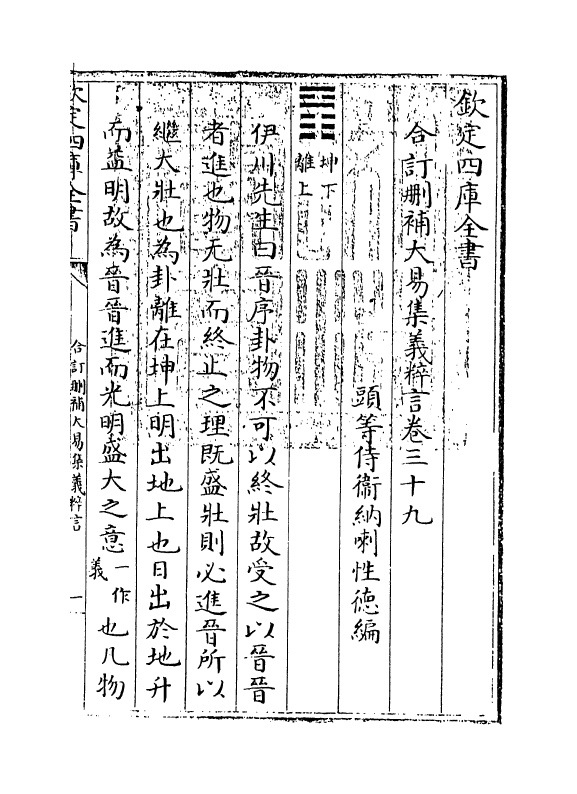 欽定四庫全書
合訂刪補大易集義粹言卷三十九
頭等侍衛納喇性德編
坤下
離上
伊川先生曰晉序卦物不可以終壯故受之以晉晉
者進也物无壯而終止之理既盛壯則必進晉所以
繼大壯也為卦離在坤上明出地上也日出於地升
而益明故為晉晉進而光明盛大之意一作義也凡物
欽定四庫全書
合訂刪補大易集義粹言
一